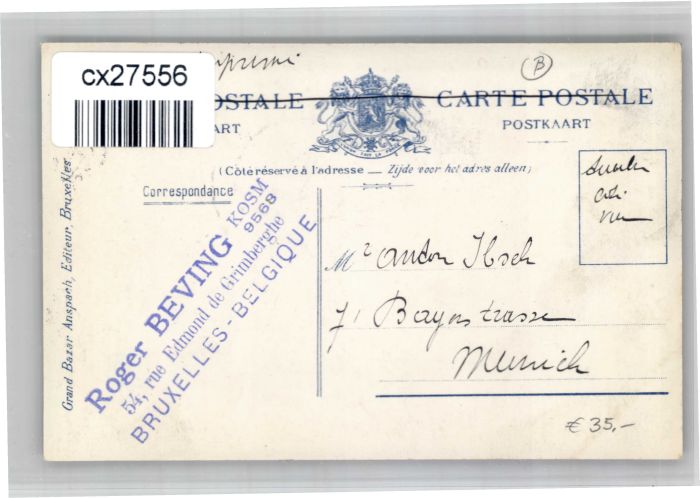 cx27556
Imprimé
B
OSTALE
CARTE POSTALE
ART
POSTKAART
(Côté réservé à l'adresse — Zijde voor het adres alleen)
Correspondance
Grand Bazar Anspach, Editeur, Bruxelles
Roger BEVING KOSM
9568
54, rue Edmond de Grimberghe
BRUXELLES - BELGIQUE
Mr Anton Ilsch
71 Bayerstrasse
Munich
€ 35,-